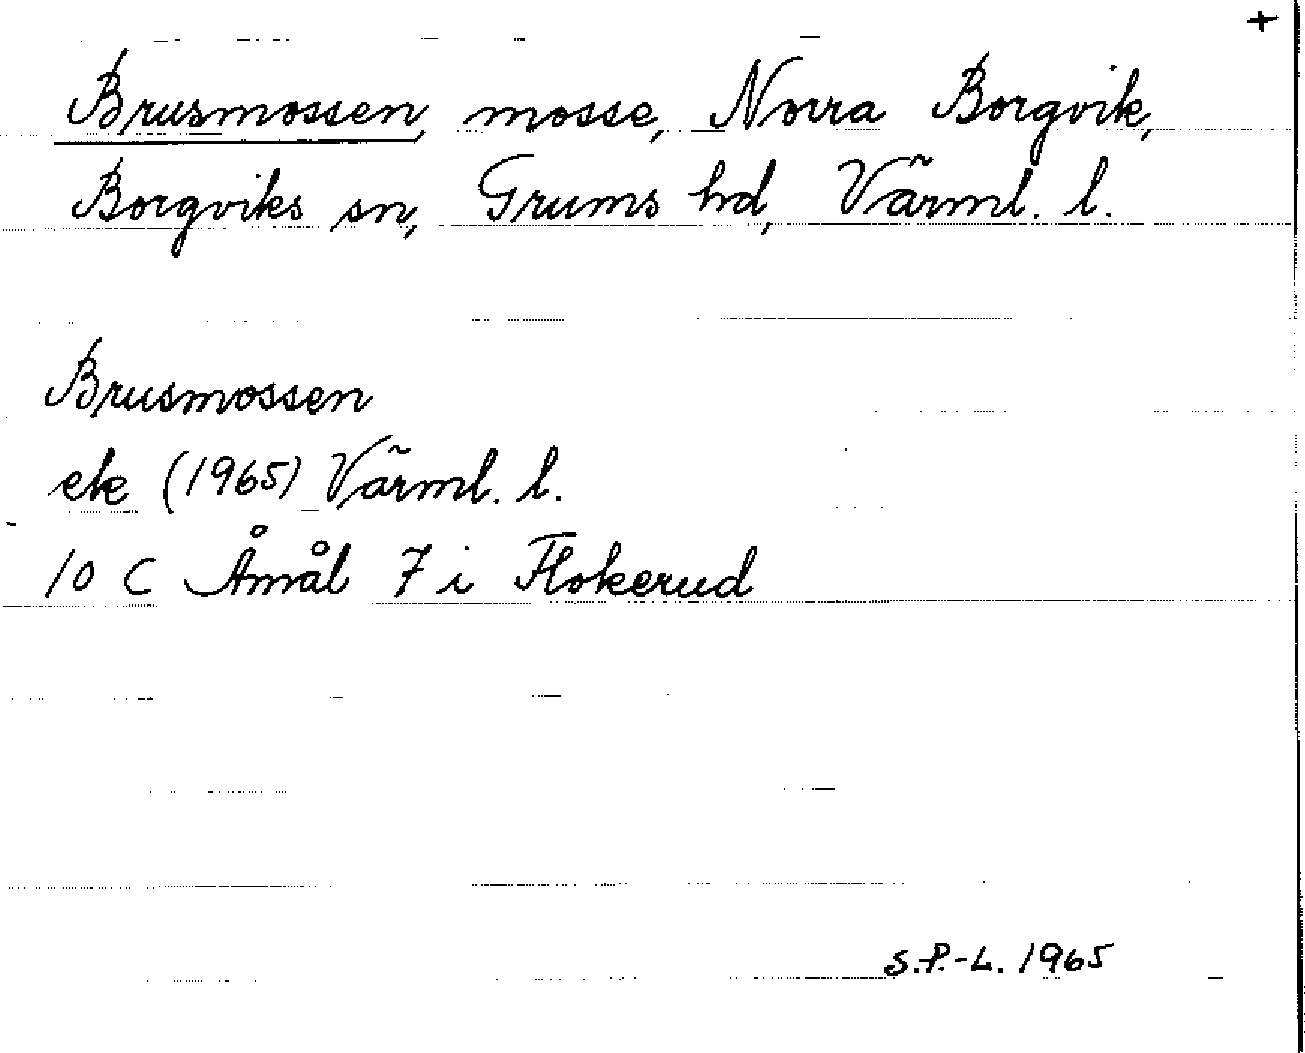 +
Brusmossen, mosse, Norra Borgvik,
Borgviks sn, Grums hd, Värml. l.
Brusmossen
ek (1965) Värml. l.
10 C Åmål 7 i Flokerud
S.P.-L. 1965